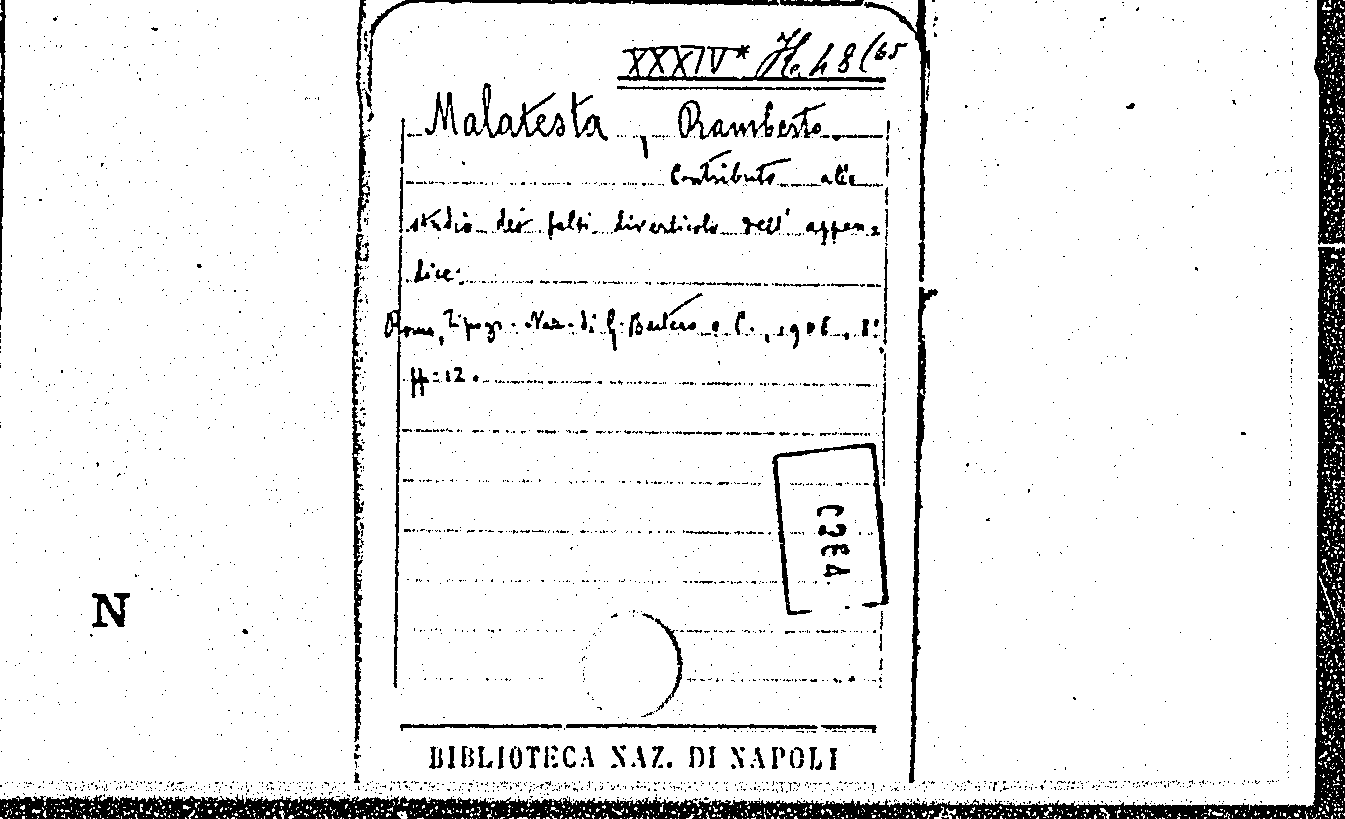 XXXIV* H. 48 (65
Malatesta, Ramberto.
Contributo allo
studio dei falsi diverticoli dell' appen=
dice:
Roma, Tipogr. Naz. di G. Bertero e C., 1908, 8º.
pp: 12.
C2EA
N
BIBLIOTECA NAZ. DI NAPOLI